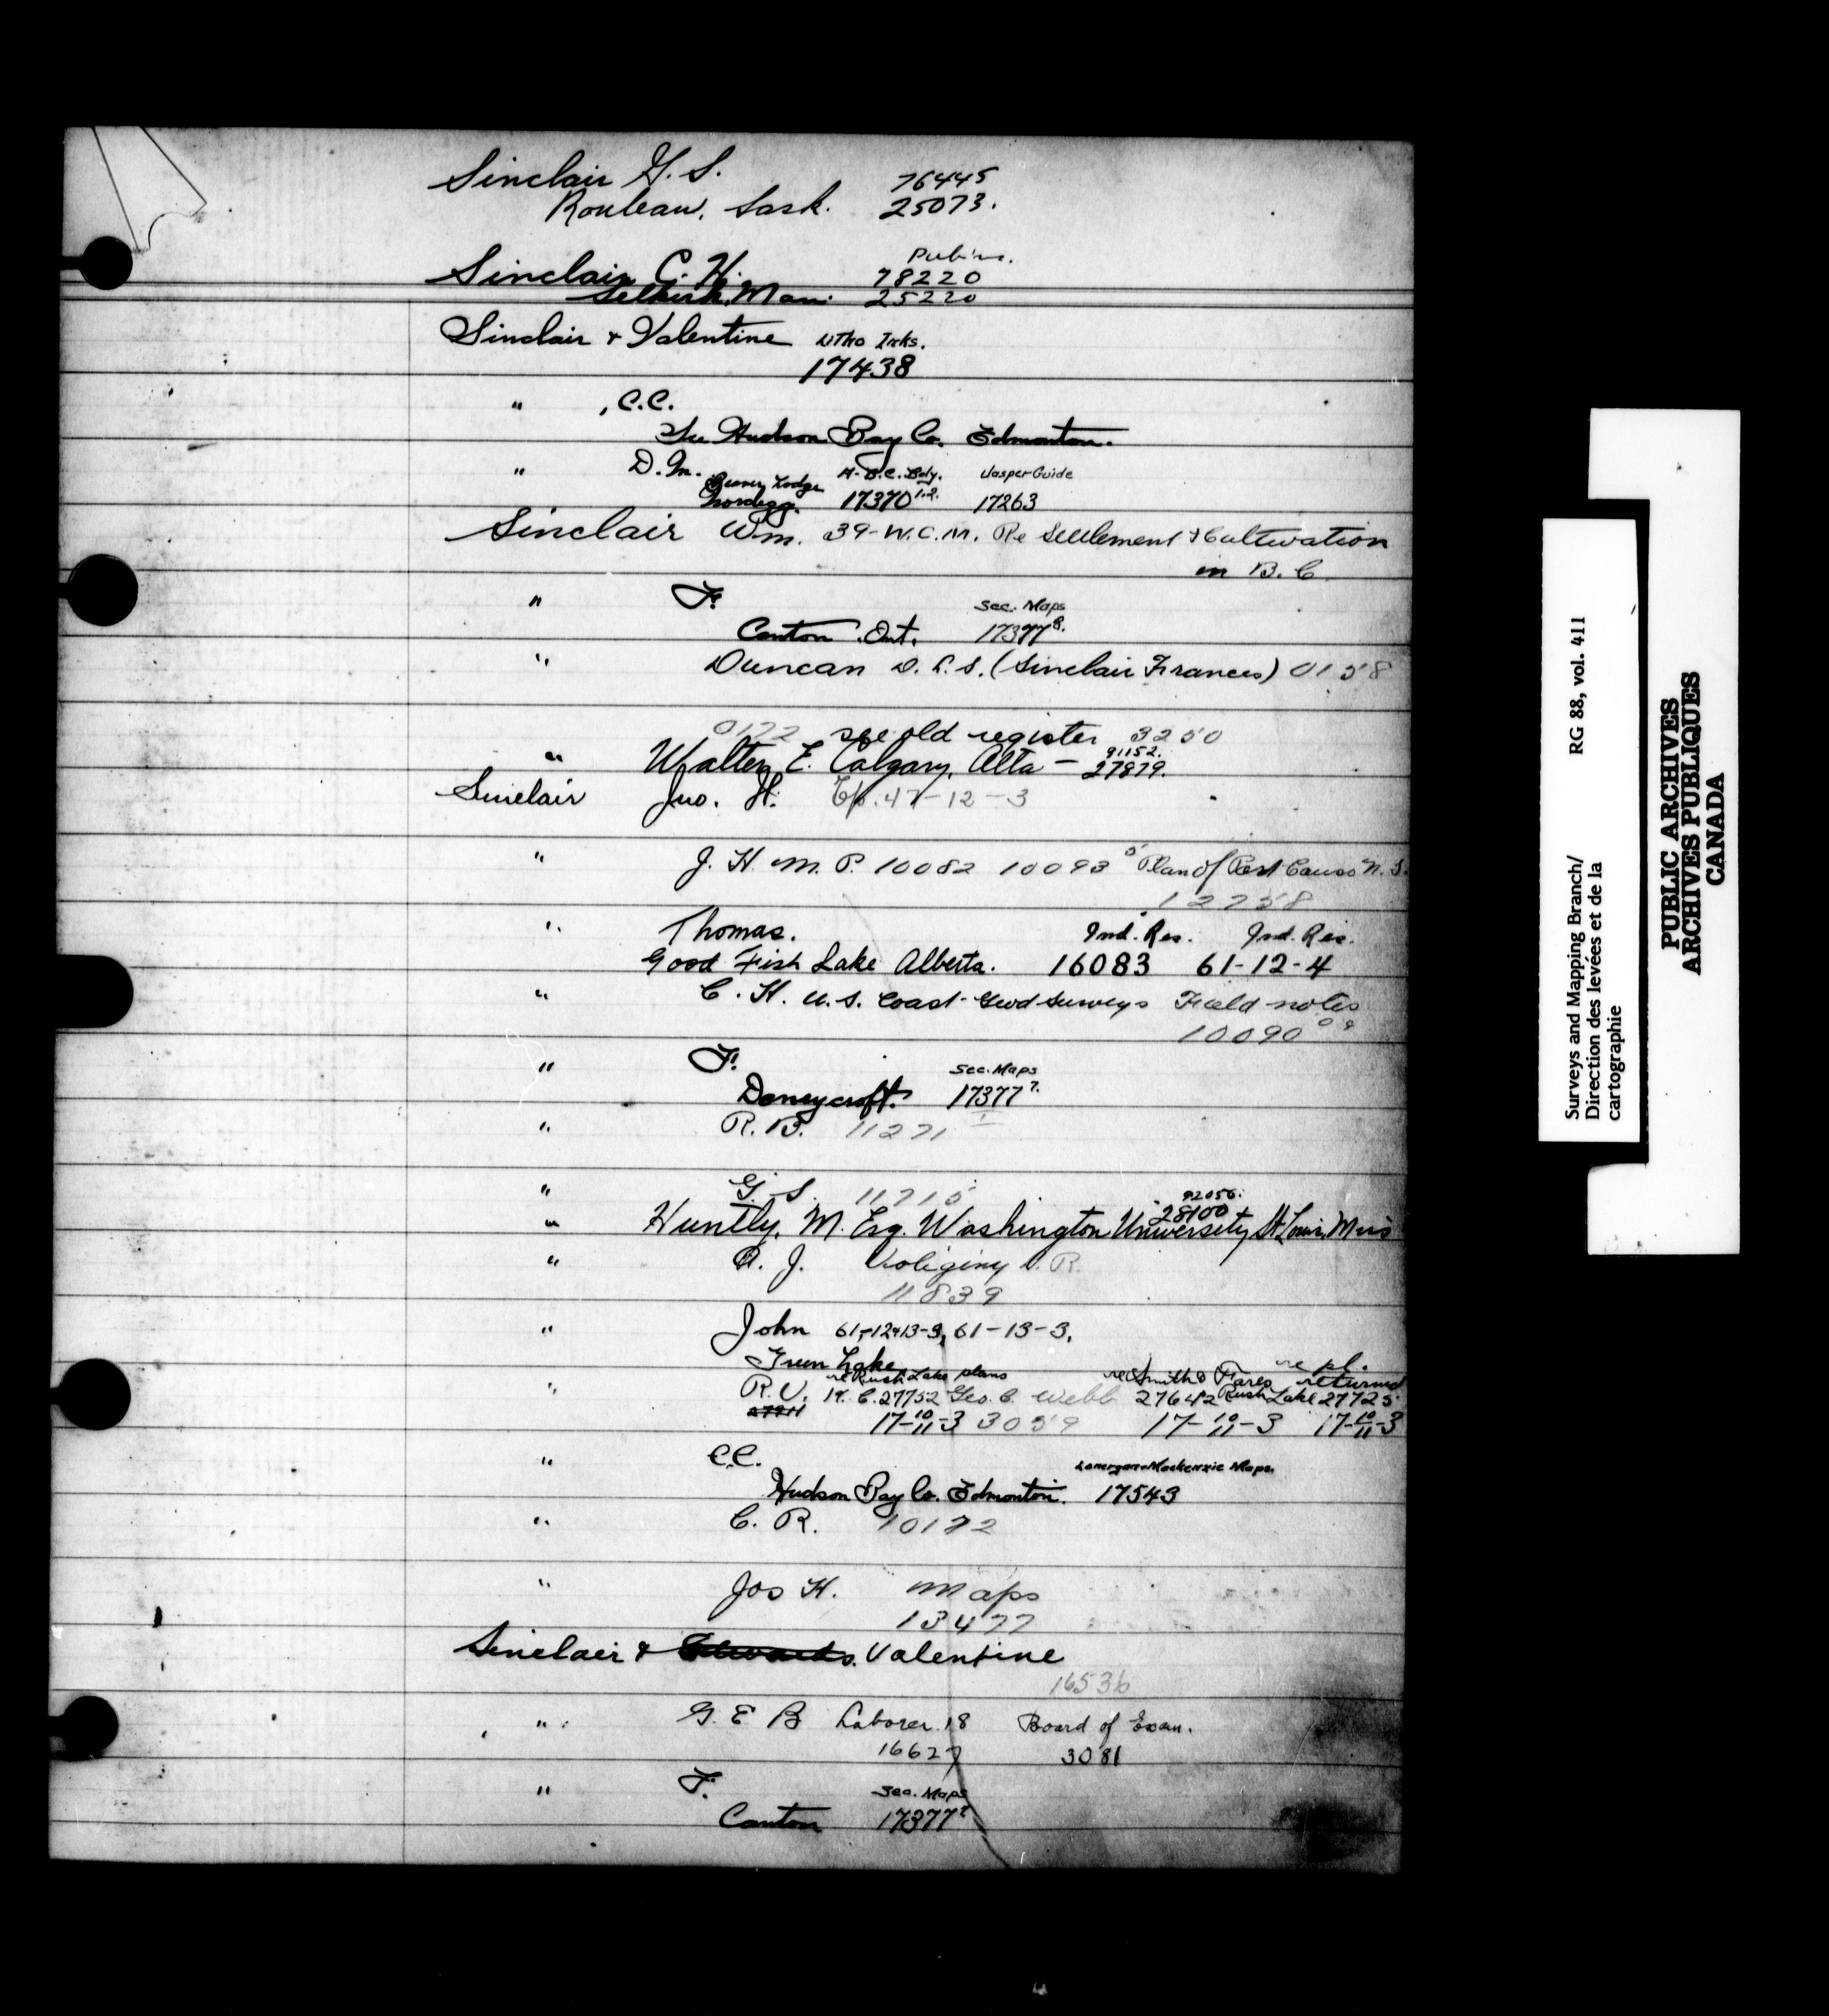 Sinclair G. S. 76445
Rouleau, Sask. 25073.
Pub'ns.
Sinclair C. H. 78220
Selkirk, Man. 25220
Sinclair & Valentine Litho Inks.
17438
" , C.C.
The Hudson Bay Co. Edmonton.
" D. M. H.B.C. Bdy. Jasper Guide
Beaver Lodge
Nordegg. 17370 1.2. 17263
Sinclair Wm. 39-W.C.M. Re Settlement & Cultivation
in B. C.
" F. Sec. Maps
Canton Ont. 17377 8.
" Duncan D. L. S. (Sinclair Frances) 0158
0122 see old register 3250
" Walter E. Calgary, Alta - 91152.
27879.
Sinclair Jno. H. Tp. 47-12-3
" J. H. M. P. 10082 10093 5 Plan of Port Canso N. S.
12258
" Thomas. Ind. Res. Ind. Res.
Good Fish Lake Alberta. 16083 61-12-4
" C. H. U. S. Coast Geod Surveys Field notes
10090 09
" F. Sec. Maps
17377 7.
" R. B. 11271
" G. S. 11715
92056.
28100
" Huntly, M. Esq. Washington University St Louis, Miss
" A. J. R.
11839
" John 61-12&13-3, 61-13-3,
Green Lake
re pl.
re Rush Lake plans re Smith & Fares returned
" R. V. H. C. 27752 Geo. C. Webb 27642 Rush Lake 27725
27711 17-10/11-3 3059 17-10/11-3 17-10/11-3
" C.C. Mackenzie Maps.
Hudson Bay Co. Edmonton. 17543
" C. R. 10172
" Jos H. Maps
13477
Sinclair & Edwards. Valentine
16536
" G. E B Laborer 18 Board of Exam.
16627 3081
" F. Sec. Maps
Canton 17377 2
Surveys and Mapping Branch/ RG 88, vol. 411
Direction des levées et de la
cartographie
PUBLIC ARCHIVES
ARCHIVES PUBLIQUES
CANADA